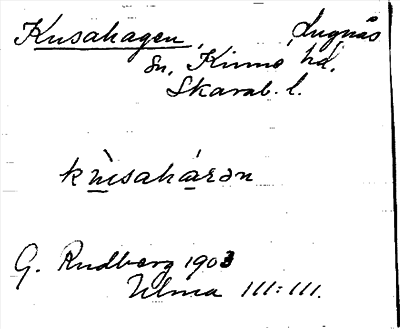 Kusahagen, Lugnås
sn, Kinne hd.
Skarab. l.
kùsaháran
G. Rudberg 1903
Ulma 111:111.